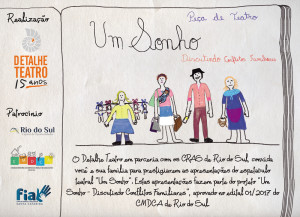 Realização
DETALHE
TEATRO
15 anos
Patrocínio
Rio do Sul
CMDCA
Fia
Peça de Teatro
Um Sonho
Discutindo Conflitos Familiares
O Detalhe Teatro em parceria com os CRAS de Rio do Sul, convida
você e sua família para prestigiarem as apresentações do espetáculo
teatral "Um Sonho". Estas apresentações fazem parte do projeto "Um
Sonho - Discutindo Conflitos Familiares", aprovado no edital 01/2017 do
CMDCA de Rio do Sul.